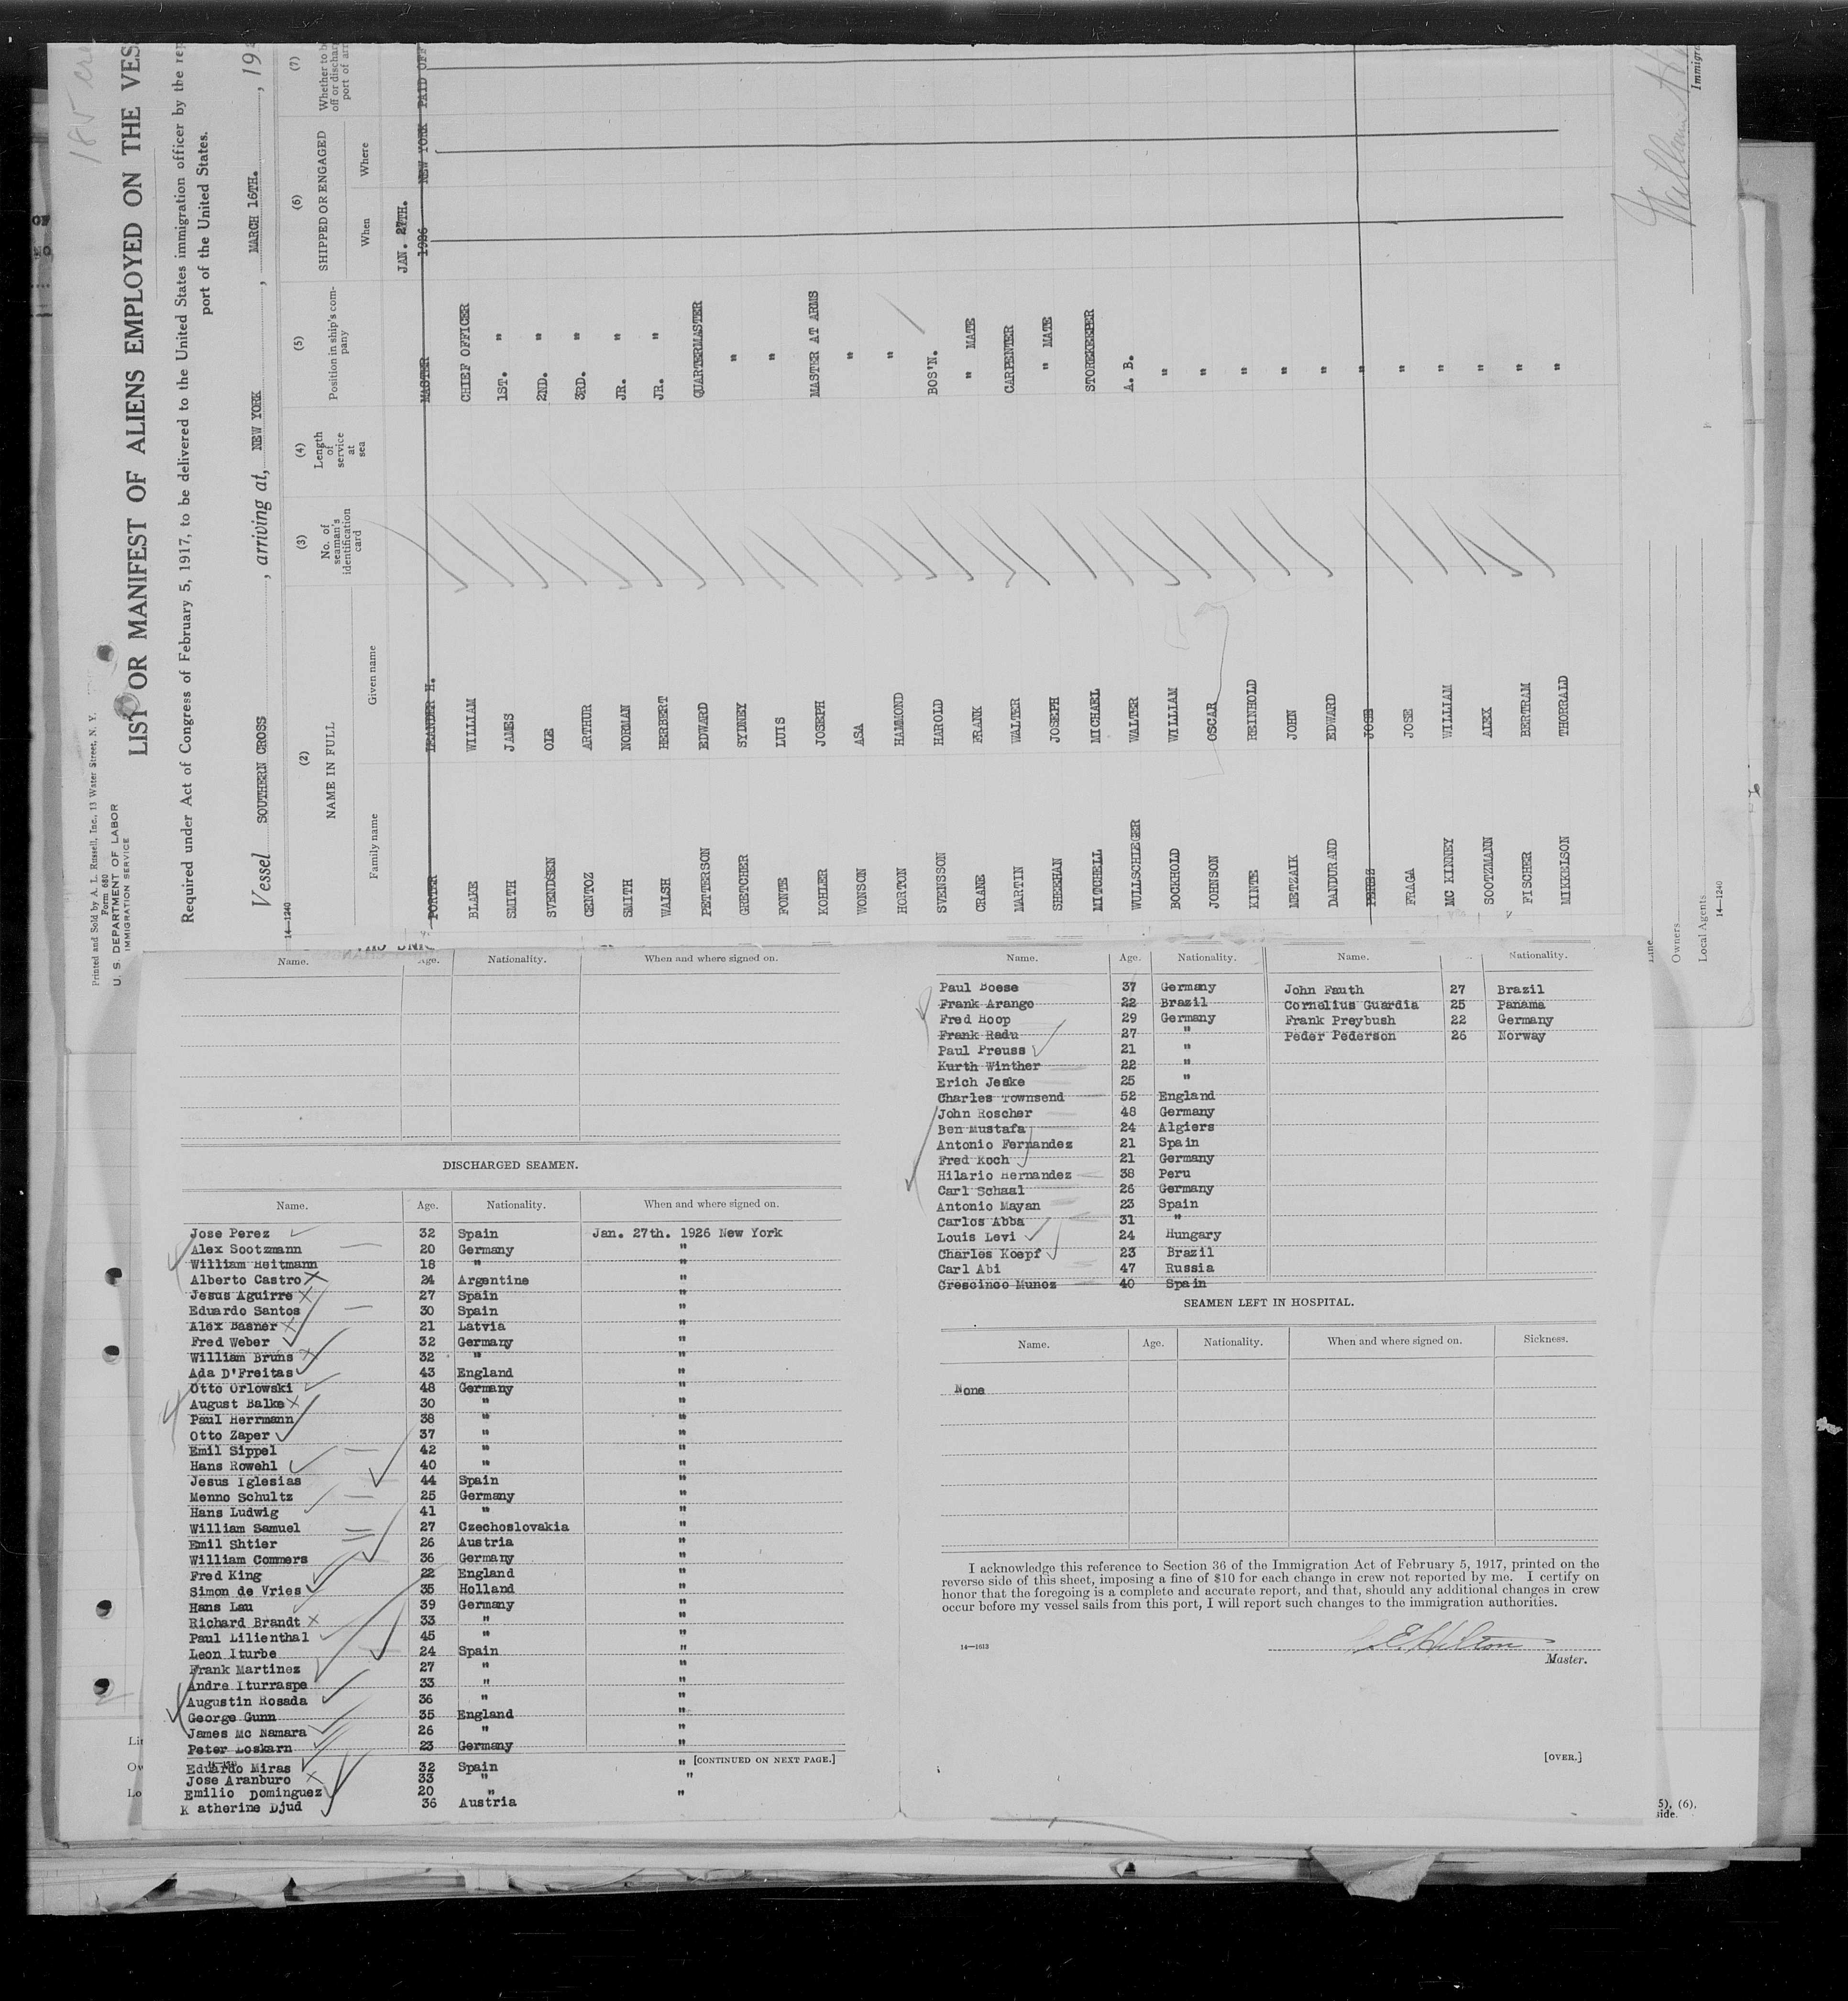 Printed and Sold by A. L. Russell, Inc., 13 Water Street, N. Y.
Form 680
U. S. DEPARTMENT OF LABOR
IMMIGRATION SERVICE
LIST OR MANIFEST OF ALIENS EMPLOYED ON THE VES
Required under Act of Congress of February 5, 1917, to be delivered to the United States immigration officer by the rep
port of the United States.
Vessel SOUTHERN CROSS, arriving at, NEW YORK, MARCH 16TH., 19
14—1240
(2) (3) (4) (5) (6) (7)
NAME IN FULL No. of seaman's identification card Length of service at sea Position in ship's company SHIPPED OR ENGAGED Whether to be
off or discharg
port of arr
Family name Given name When Where
JAN. 27TH.
PORTER LEANDER H. MASTER 1926 NEW YORK PAID OFF
BLAKE WILLIAM CHIEF OFFICER
SMITH JAMES 1ST. "
SVENDSEN OLE 2ND. "
GENTOZ ARTHUR 3RD. "
SMITH NORMAN JR. "
WALSH HERBERT JR. "
PETTERSON EDWARD QUARTERMASTER
GRETCHER SYDNEY "
FONTE LUIS "
KOHLER JOSEPH MASTER AT ARMS
WONSON ASA "
HORTON HAMMOND "
SVENSSON HAROLD BOS'N.
CRANE FRANK " MATE
MARTIN WALTER CARPENTER
SHEEHAN JOSEPH " MATE
MITCHELL MICHAEL STOREKEEPER
WULLSCHIEGER WALTER A. B.
BOCKHOLD WILLIAM "
JOHNSON OSCAR "
KINTE REINHOLD "
METZAIK JOHN "
DANDURAND EDWARD "
PEREZ JOSE "
FRAGA JOSE "
MC KINNEY WILLIAM "
SOOTZMANN ALEX "
FISCHER BERTRAM "
MIKKELSON THORRALD "
Owners
Local Agents
14—1240
Immigra
Name. Age. Nationality. When and where signed on.
DISCHARGED SEAMEN.
Name. Age. Nationality. When and where signed on.
Jose Perez 32 Spain Jan. 27th. 1926 New York
Alex Sootzmann 20 Germany "
William Heitmann 18 " "
Alberto Castro 24 Argentine "
Jesus Aguirre 27 Spain "
Eduardo Santos 30 Spain "
Alex Basner 21 Latvia "
Fred Weber 32 Germany "
William Bruns 32 " "
Ada D'Freitas 43 England "
Otto Orlowski 48 Germany "
August Balke 30 " "
Paul Herrmann 38 " "
Otto Zaper 37 " "
Emil Sippel 42 " "
Hans Rowehl 40 " "
Jesus Iglesias 44 Spain "
Menno Schultz 25 Germany "
Hans Ludwig 41 " "
William Samuel 27 Czechoslovakia "
Emil Shtier 26 Austria "
William Commers 36 Germany "
Fred King 22 England "
Simon de Vries 35 Holland "
Hans Lau 39 Germany "
Richard Brandt 33 " "
Paul Lilienthal 45 " "
Leon Iturbe 24 Spain "
Frank Martinez 27 " "
Andre Iturraspe 33 " "
Augustin Rosada 36 " "
George Gunn 35 England "
James Mc Namara 26 " "
Peter Loskarn 23 Germany "
Eduardo Miras 32 Spain " [CONTINUED ON NEXT PAGE.]
Jose Aranburo 33 " "
Emilio Dominguez 20 " "
K atherine Djud 36 Austria
Name. Age. Nationality. Name. Nationality.
Paul Boese 37 Germany John Fauth 27 Brazil
Frank Arango 22 Brazil Cornelius Guardia 25 Panama
Fred Hoop 29 Germany Frank Preybush 22 Germany
Frank Radu 27 " Peder Pederson 26 Norway
Paul Preuss 21 "
Kurth Winther 22 "
Erich Jeske 25 "
Charles Townsend 52 England
John Roscher 48 Germany
Ben Mustafa 24 Algiers
Antonio Fernandez 21 Spain
Fred Koch 21 Germany
Hilario Hernandez 38 Peru
Carl Schaal 26 Germany
Antonio Mayan 23 Spain
Carlos Abba 31 "
Louis Levi 24 Hungary
Charles Koepf 23 Brazil
Carl Abi 47 Russia
Crescinco Munoz 40 Spain
SEAMEN LEFT IN HOSPITAL.
Name. Age. Nationality. When and where signed on. Sickness.
None
I acknowledge this reference to Section 36 of the Immigration Act of February 5, 1917, printed on the
reverse side of this sheet, imposing a fine of $10 for each change in crew not reported by me. I certify on
honor that the foregoing is a complete and accurate report, and that, should any additional changes in crew
occur before my vessel sails from this port, I will report such changes to the immigration authorities.
14—1613
Master.
[OVER.]
5), (6),
side.